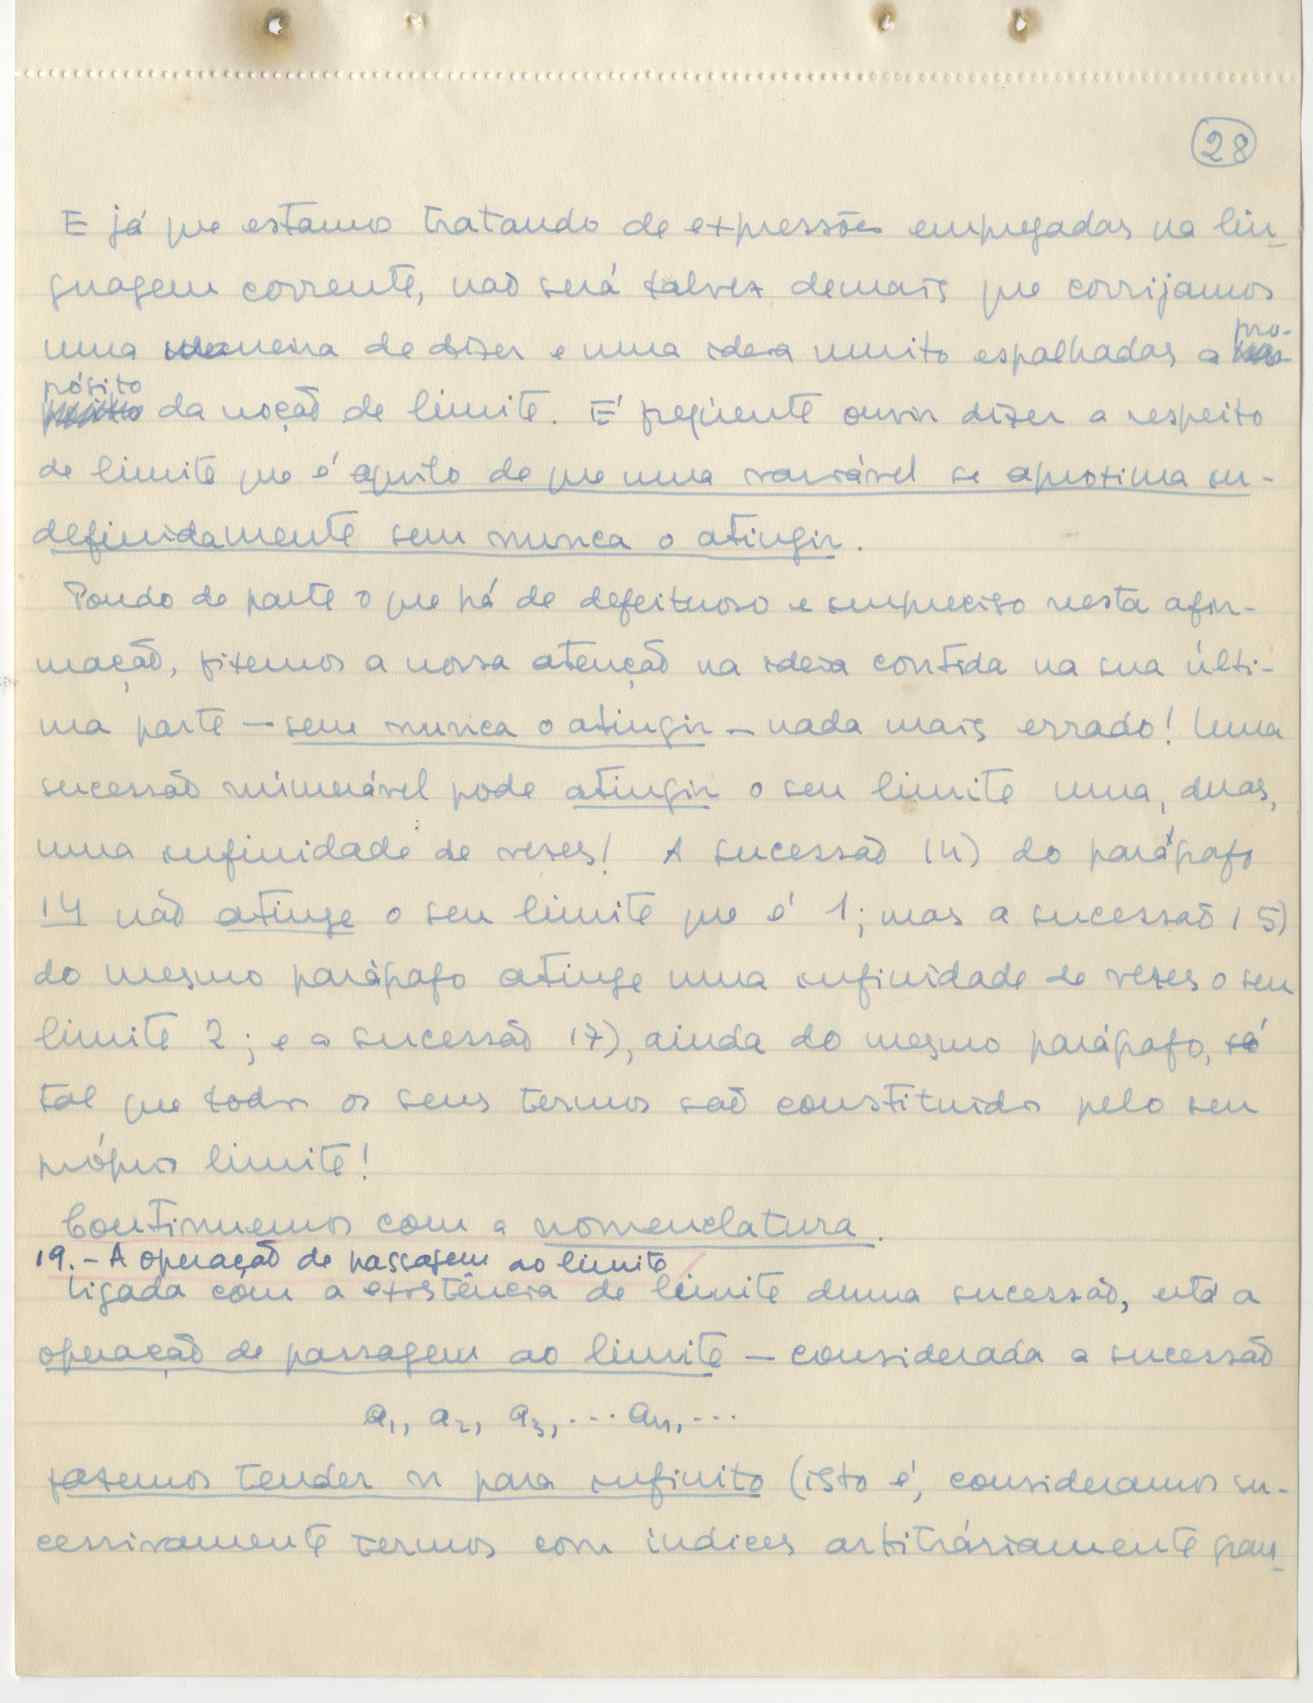 28
E já que estamos tratando de expressões empregadas na lin-
guagem corrente, não será talvez demais que corrijamos
uma maneira de dizer e uma ideia muito espalhadas a pro-
pósito da noção de limite. É freqüente ouvir dizer a respeito
de limite que é aquilo de que uma variável se aproxima in-
definidamente sem nunca o atingir.
Pondo de parte o que há de defeituoso e impreciso nesta afir-
mação, fixemos a nossa atenção na ideia contida na sua últi-
ma parte — sem nunca o atingir — nada mais errado! Uma
sucessão numerável pode atingir o seu limite uma, duas,
uma infinidade de vezes! A sucessão (4) do parágrafo
14 não atinge o seu limite que é 1; mas a sucessão (5)
do mesmo parágrafo atinge uma infinidade de vezes o seu
limite 2; e a sucessão (7), ainda do mesmo parágrafo, é
tal que todos os seus termos são constituidos pelo seu
próprio limite!
Continuemos com a nomenclatura.
19. – A operação de passagem ao limite
Ligada com a existência de limite duma sucessão, está a
operação de passagem ao limite — considerada a sucessão
a₁, a₂, a₃, ... aₙ, ...
fazemos tender n para infinito (isto é, consideramos su-
cessivamente termos com indices arbitràriamente gran-